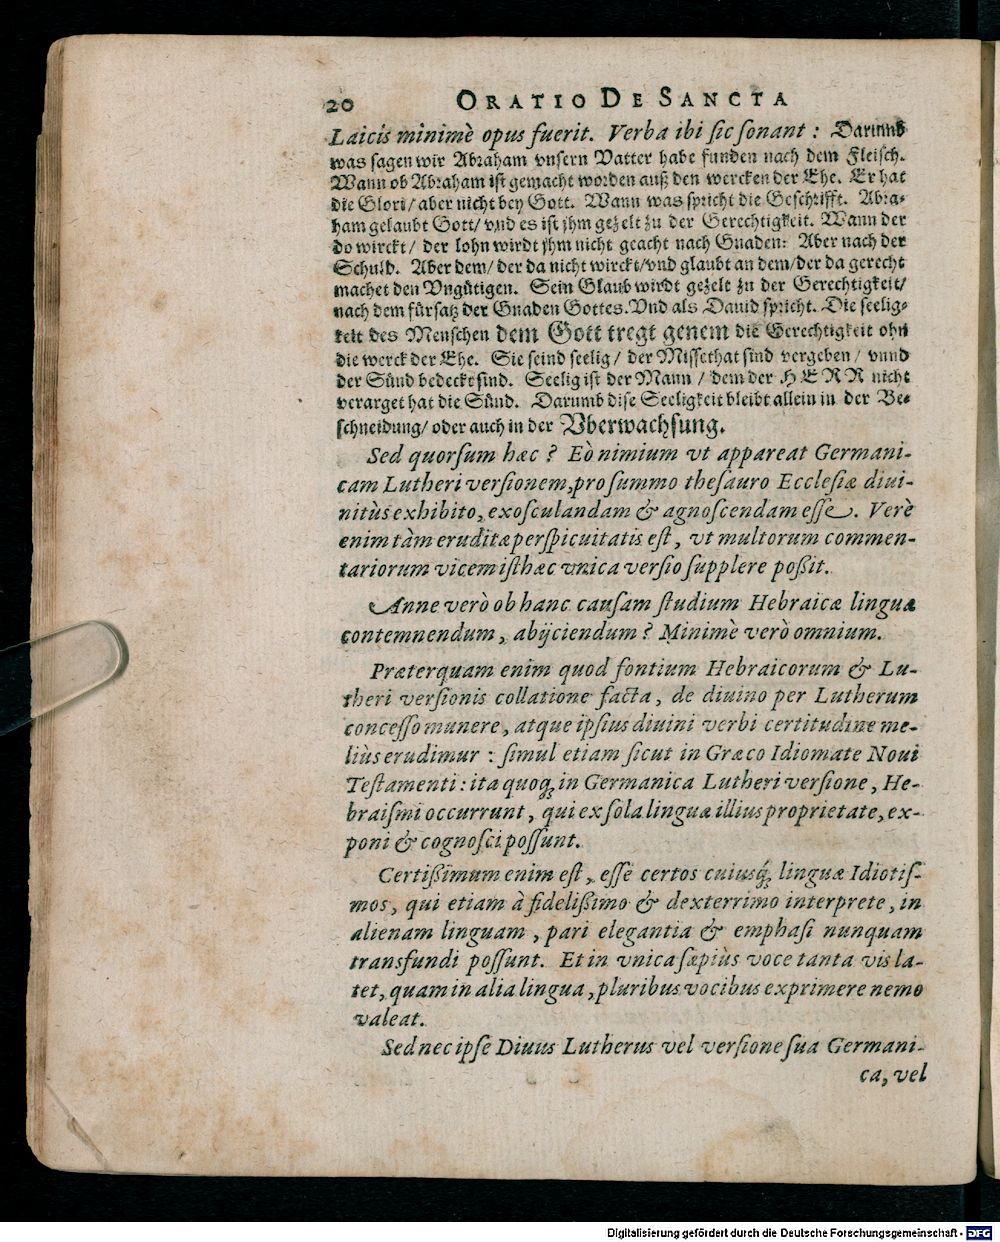 20 ORATIO DE SANCTA
Laicis minimè opus fuerit. Verba ibi sic sonant: Darumb
was sagen wir Abraham vnsern Vatter habe funden nach dem Fleisch.
Wann ob Abraham ist gemacht worden auß den wercken der Ehe. Er hat
die Glori/ aber nicht bey Gott. Wann was spricht die Geschrifft. Abra-
ham gelaubt Gott/ vnd es ist jhm gezelt zu der Gerechtigkeit. Wann der
do wirckt/ der lohn wirdt jhm nicht geacht nach Gnaden: Aber nach der
Schuld. Aber dem/ der da nicht wirckt/ vnd glaubt an dem/ der da gerecht
machet den Vngütigen. Sein Glaub wirdt gezelt zu der Gerechtigkeit/
nach dem fürsatz der Gnaden Gottes. Vnd als Dauid spricht. Die seelig-
keit des Menschen dem Gott tregt genem die Gerechtigkeit ohn
die werck der Ehe. Sie seind seelig/ der Missethat sind vergeben/ vnnd
der Sünd bedeckt sind. Seelig ist der Mann/ dem der HERR nicht
verarget hat die Sünd. Darumb dise Seeligkeit bleibt allein in der Be-
schneidung/ oder auch in der Vberwachsung.
Sed quorsum hæc? Eò nimium vt appareat Germani-
cam Lutheri versionem, pro summo thesauro Ecclesiæ diui-
nitùs exhibito, exosculandam & agnoscendam esse. Verè
enim tàm eruditæ perspicuitatis est, vt multorum commen-
tariorum vicem isthæc vnica versio supplere poßit.
Anne verò ob hanc causam studium Hebraicæ linguæ
contemnendum, abijciendum? Minimè verò omnium.
Præterquam enim quod fontium Hebraicorum & Lu-
theri versionis collatione facta, de diuino per Lutherum
concesso munere, atque ipsius diuini verbi certitudine me-
liùs erudimur: simul etiam sicut in Græco Idiomate Noui
Testamenti: ita quoq; in Germanica Lutheri versione, He-
braismi occurrunt, qui ex sola linguæ illius proprietate, ex-
poni & cognosci possunt.
Certißimum enim est, esse certos cuiusq́; linguæ Idiotis-
mos, qui etiam à fidelißimo & dexterrimo interprete, in
alienam linguam, pari elegantia & emphasi nunquam
transfundi possunt. Et in vnica sæpiùs voce tanta vis la-
tet, quam in alia lingua, pluribus vocibus exprimere nemo
valeat.
Sed nec ipse Diuus Lutherus vel versione sua Germani-
ca, vel
Digitalisierung gefördert durch die Deutsche Forschungsgemeinschaft - DFG